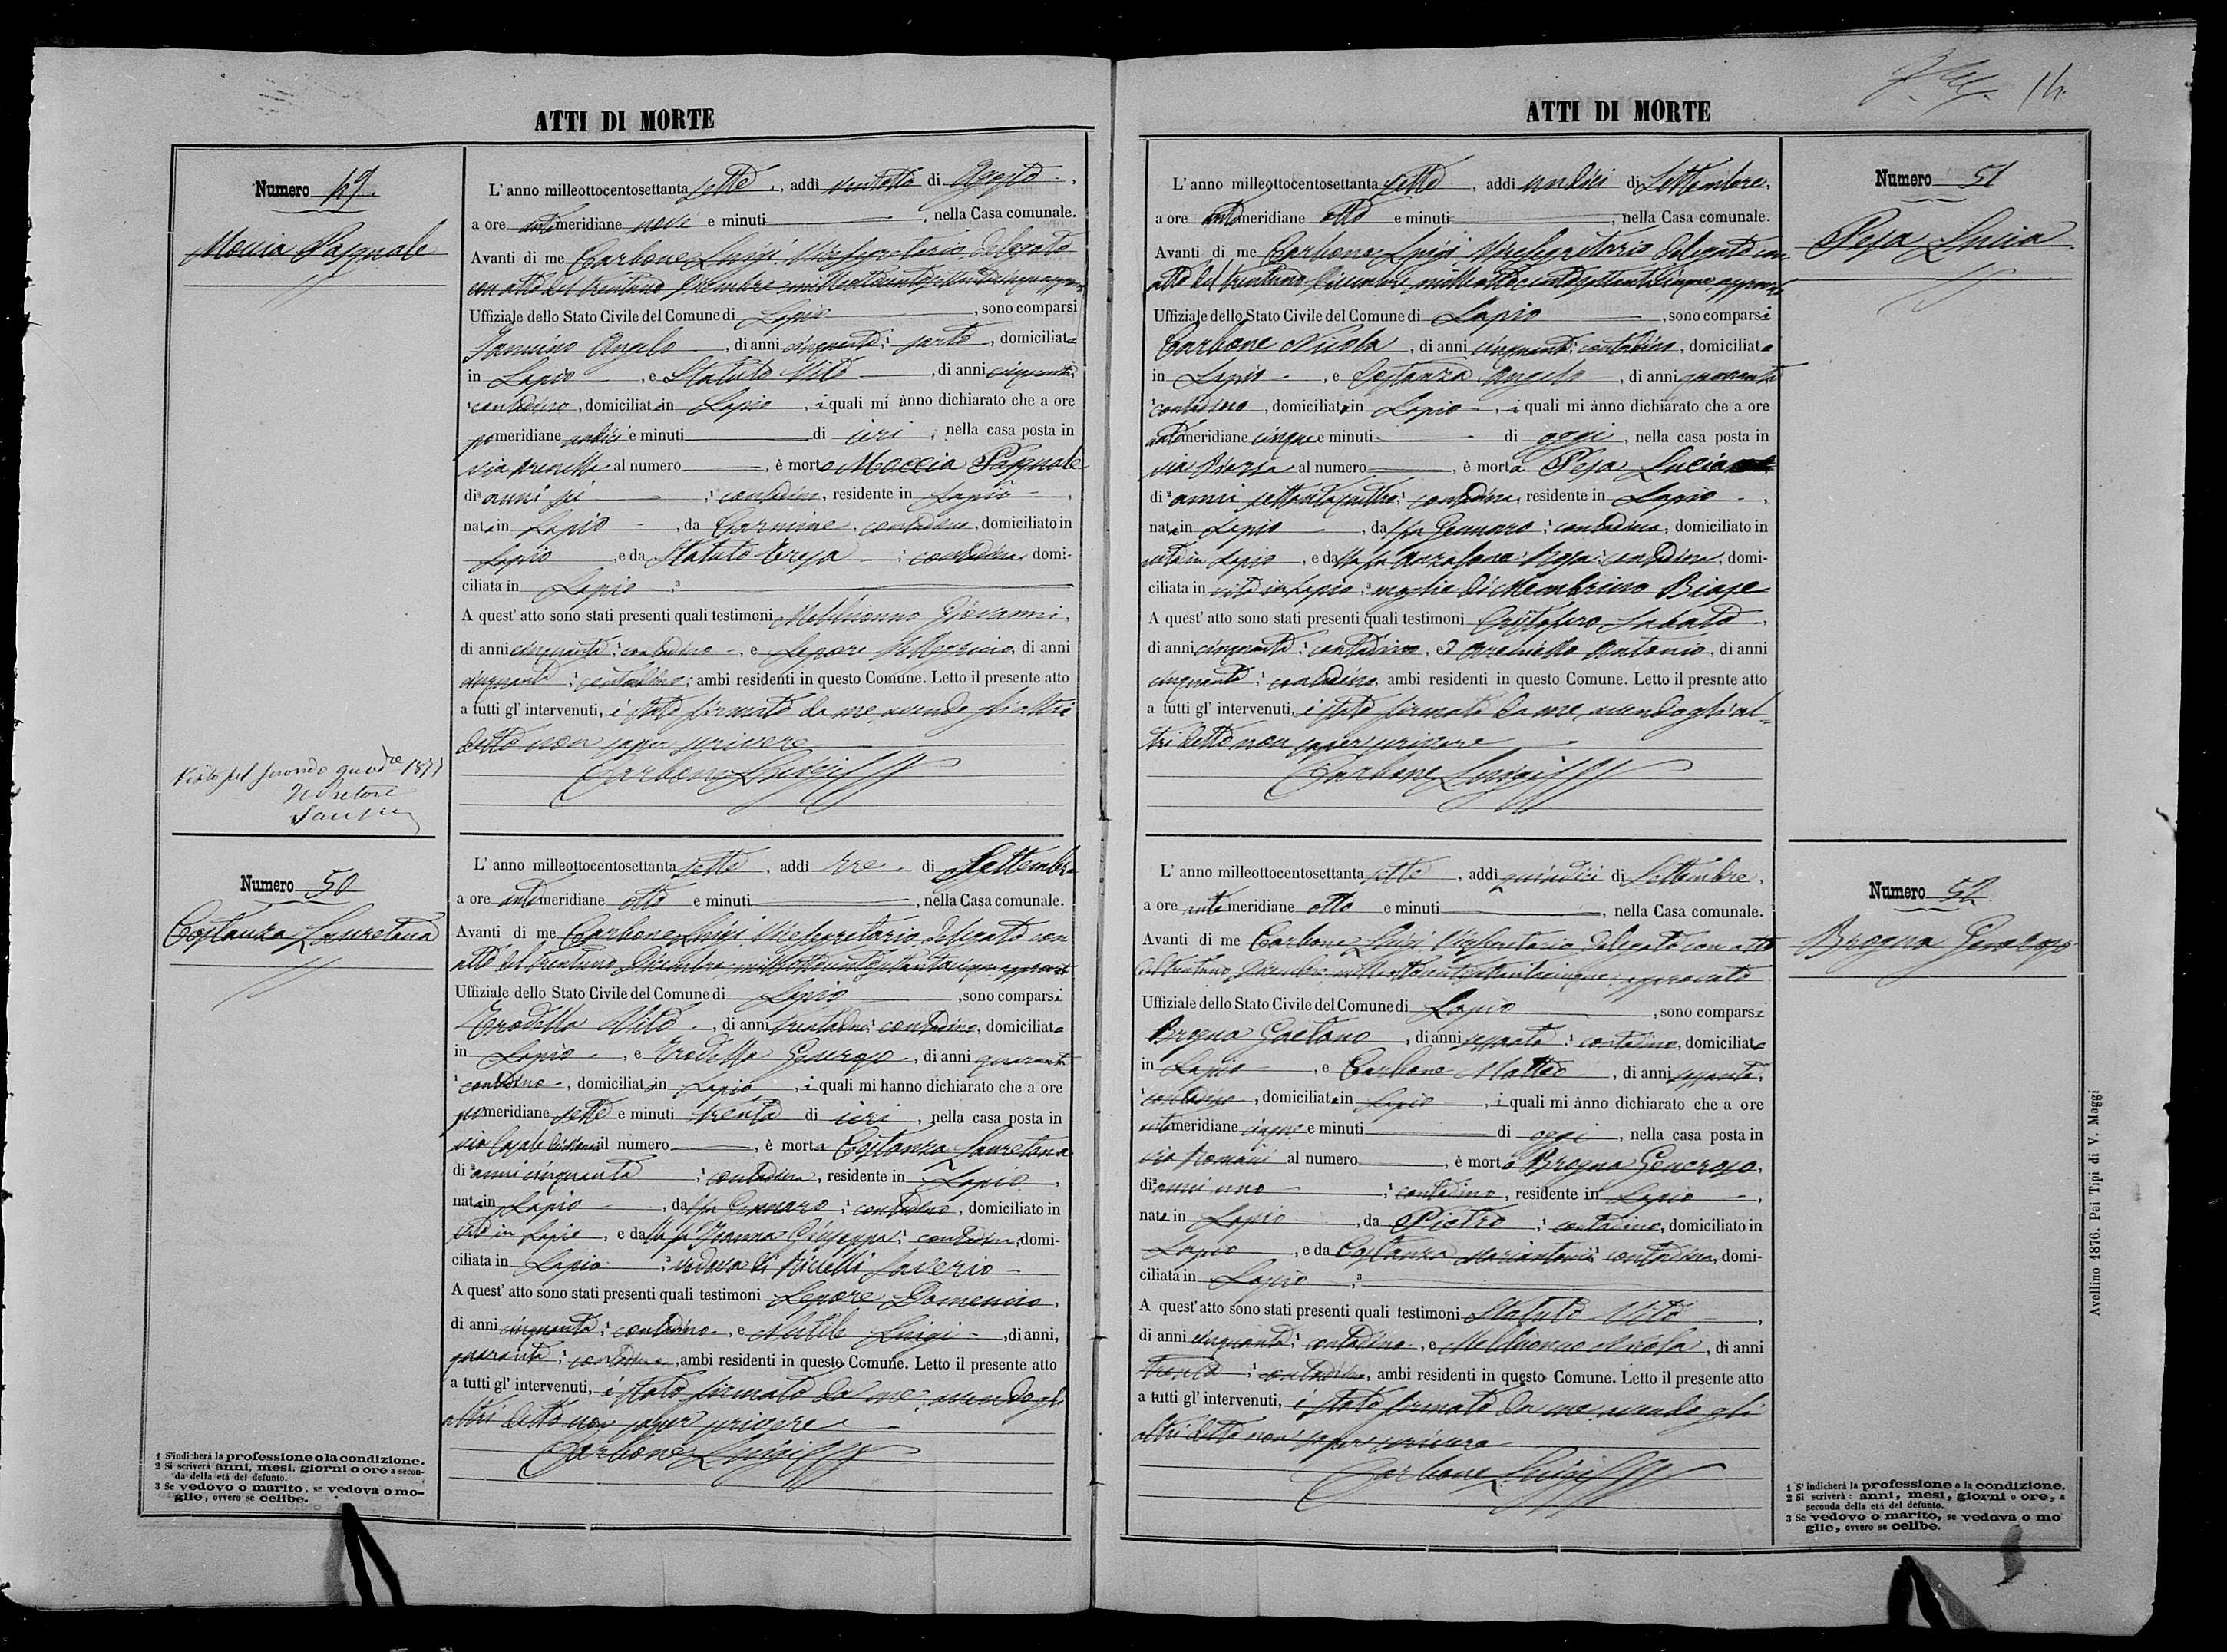 ATTI DI MORTE
Numero 49.
Moccia Pasquale
L' anno milleottocentosettanta sette, addì ventotto di Agosto,
a ore antimeridiane nove e minuti, nella Casa comunale.
Avanti di me Carbone Luigi Vicesegretario delegato
con atto del trentuno Dicembre milleottocentosettantacinque approvato
Uffiziale dello Stato Civile del Comune di Lapio, sono comparsi
Angelo, di anni cinquanta, sarto, domiciliato
in Lapio, e Statuto Vito, di anni cinquanta,
contadino, domiciliato in Lapio, i quali mi ànno dichiarato che a ore
pomeridiane undici e minuti di ieri, nella casa posta in
via al numero, è morto Moccia Pasquale
di anni sei, contadino, residente in Lapio,
nato in Lapio, da Carmine, contadino, domiciliato in
Lapio, e da Statuto Teresa, contadina, domi-
ciliata in Lapio 3
A quest' atto sono stati presenti quali testimoni Melchionno Giovanni,
di anni cinquanta, contadino, e Lepore Pellegrino, di anni
cinquanta, contadino, ambi residenti in questo Comune. Letto il presente atto
a tutti gl' intervenuti, è stato firmato da me, avendo gli altri
detto non saper scrivere
Carbone Luigi
Visto pel secondo quadre 1877
Il Pretore
Numero 50
Costanza Lauretana
L' anno milleottocentosettanta sette, addì tre di Settembre
a ore antimeridiane otto e minuti, nella Casa comunale.
Avanti di me Carbone Luigi Vicesegretario delegato con
atto del trentuno Dicembre milleottocentosettantacinque approvato
Uffiziale dello Stato Civile del Comune di Lapio, sono comparsi
Trodella Vito, di anni trentadue, contadino, domiciliato
in Lapio, e Trodella Generoso, di anni quaranta
contadino, domiciliato in Lapio, i quali mi hanno dichiarato che a ore
pomeridiane sette e minuti trenta di ieri, nella casa posta in
via Casale al numero, è morta Costanza Lauretana
di anni cinquanta, contadina, residente in Lapio,
nata in Lapio, dal fu Gennaro, contadino, domiciliato in
vita in Lapio, e dalla fu Joanna Giuseppa, contadina, domi-
ciliata in Lapio 3 vedova di Saverio
A quest' atto sono stati presenti quali testimoni Lepore Domenico,
di anni cinquanta, contadino, e Luigi, di anni,
quaranta, contadino, ambi residenti in questo Comune. Letto il presente atto
a tutti gl' intervenuti, è stato firmato da me, avendo gli
altri detto non saper scrivere
Carbone Luigi
1 S'indicherà la professione o la condizione.
2 Si scriverà anni, mesi, giorni o ore a secon-
da della età del defunto.
3 Se vedovo o marito, se vedova o mo-
glie, ovvero se celibe.
ATTI DI MORTE
Numero 51
Pesa Lucia
L' anno milleottocentosettanta sette, addì undici di Settembre,
a ore antimeridiane otto e minuti, nella Casa comunale.
Avanti di me Carbone Luigi Vicesegretario delegato con
atto del trentuno Dicembre milleottocentosettantacinque approvato
Uffiziale dello Stato Civile del Comune di Lapio, sono comparsi
Carbone Nicola, di anni cinquanta, contadino, domiciliato
in Lapio, e Costanza Angelo, di anni quaranta
contadino, domiciliato in Lapio, i quali mi ànno dichiarato che a ore
antimeridiane cinque e minuti di oggi, nella casa posta in
via al numero, è morta Pesa Lucia
di anni settantaquattro, contadina, residente in Lapio,
nata in Lapio, dal fu Gennaro, contadino, domiciliato in
vita in Lapio, e dalla fu Anzalone Rosa, contadina, domi-
ciliata in vita in Lapio, 3 moglie di Membrino Biage
A quest' atto sono stati presenti quali testimoni Cristofaro Sabato,
di anni cinquanta, contadino, ed Antonio, di anni
cinquanta, contadino, ambi residenti in questo Comune. Letto il presnte atto
a tutti gl' intervenuti, è stato firmato da me, avendo gli al-
tri detto non saper scrivere
Carbone Luigi
Numero 52
Brogna Generoso
L' anno milleottocentosettanta sette, addì quindici di Settembre,
a ore antimeridiane otto e minuti, nella Casa comunale.
Avanti di me Carbone Luigi Vicesegretario delegato con atto
del trentuno Dicembre milleottocentosettantacinque approvato
Uffiziale dello Stato Civile del Comune di Lapio, sono comparsi
Brogna Gaetano, di anni sessanta, contadino, domiciliato
in Lapio, e Carbone Matteo, di anni sessanta,
contadino, domiciliato in Lapio, i quali mi ànno dichiarato che a ore
antimeridiane cinque e minuti di oggi, nella casa posta in
via Romani al numero, è morto Brogna Generoso,
di anni uno, contadino, residente in Lapio,
nato in Lapio, da Pietro, contadino, domiciliato in
Lapio, e da Costanza Mariantonia contadina, domi-
ciliata in Lapio, 3
A quest' atto sono stati presenti quali testimoni Statuto Vito,
di anni cinquanta, contadino, e Melchionno Nicola, di anni
trenta, contadino, ambi residenti in questo Comune. Letto il presente atto
a tutti gl' intervenuti, è stato firmato da me, avendo gli
altri detto non saper scrivere
Carbone Luigi
1 S' indicherà la professione o la condizione.
2 Si scriverà: anni, mesi, giorni o ore, a
seconda della età del defunto.
3 Se vedovo o marito, se vedova o mo
glie, ovvero se celibe.
Avellino 1876. Pei Tipi di V. Maggi